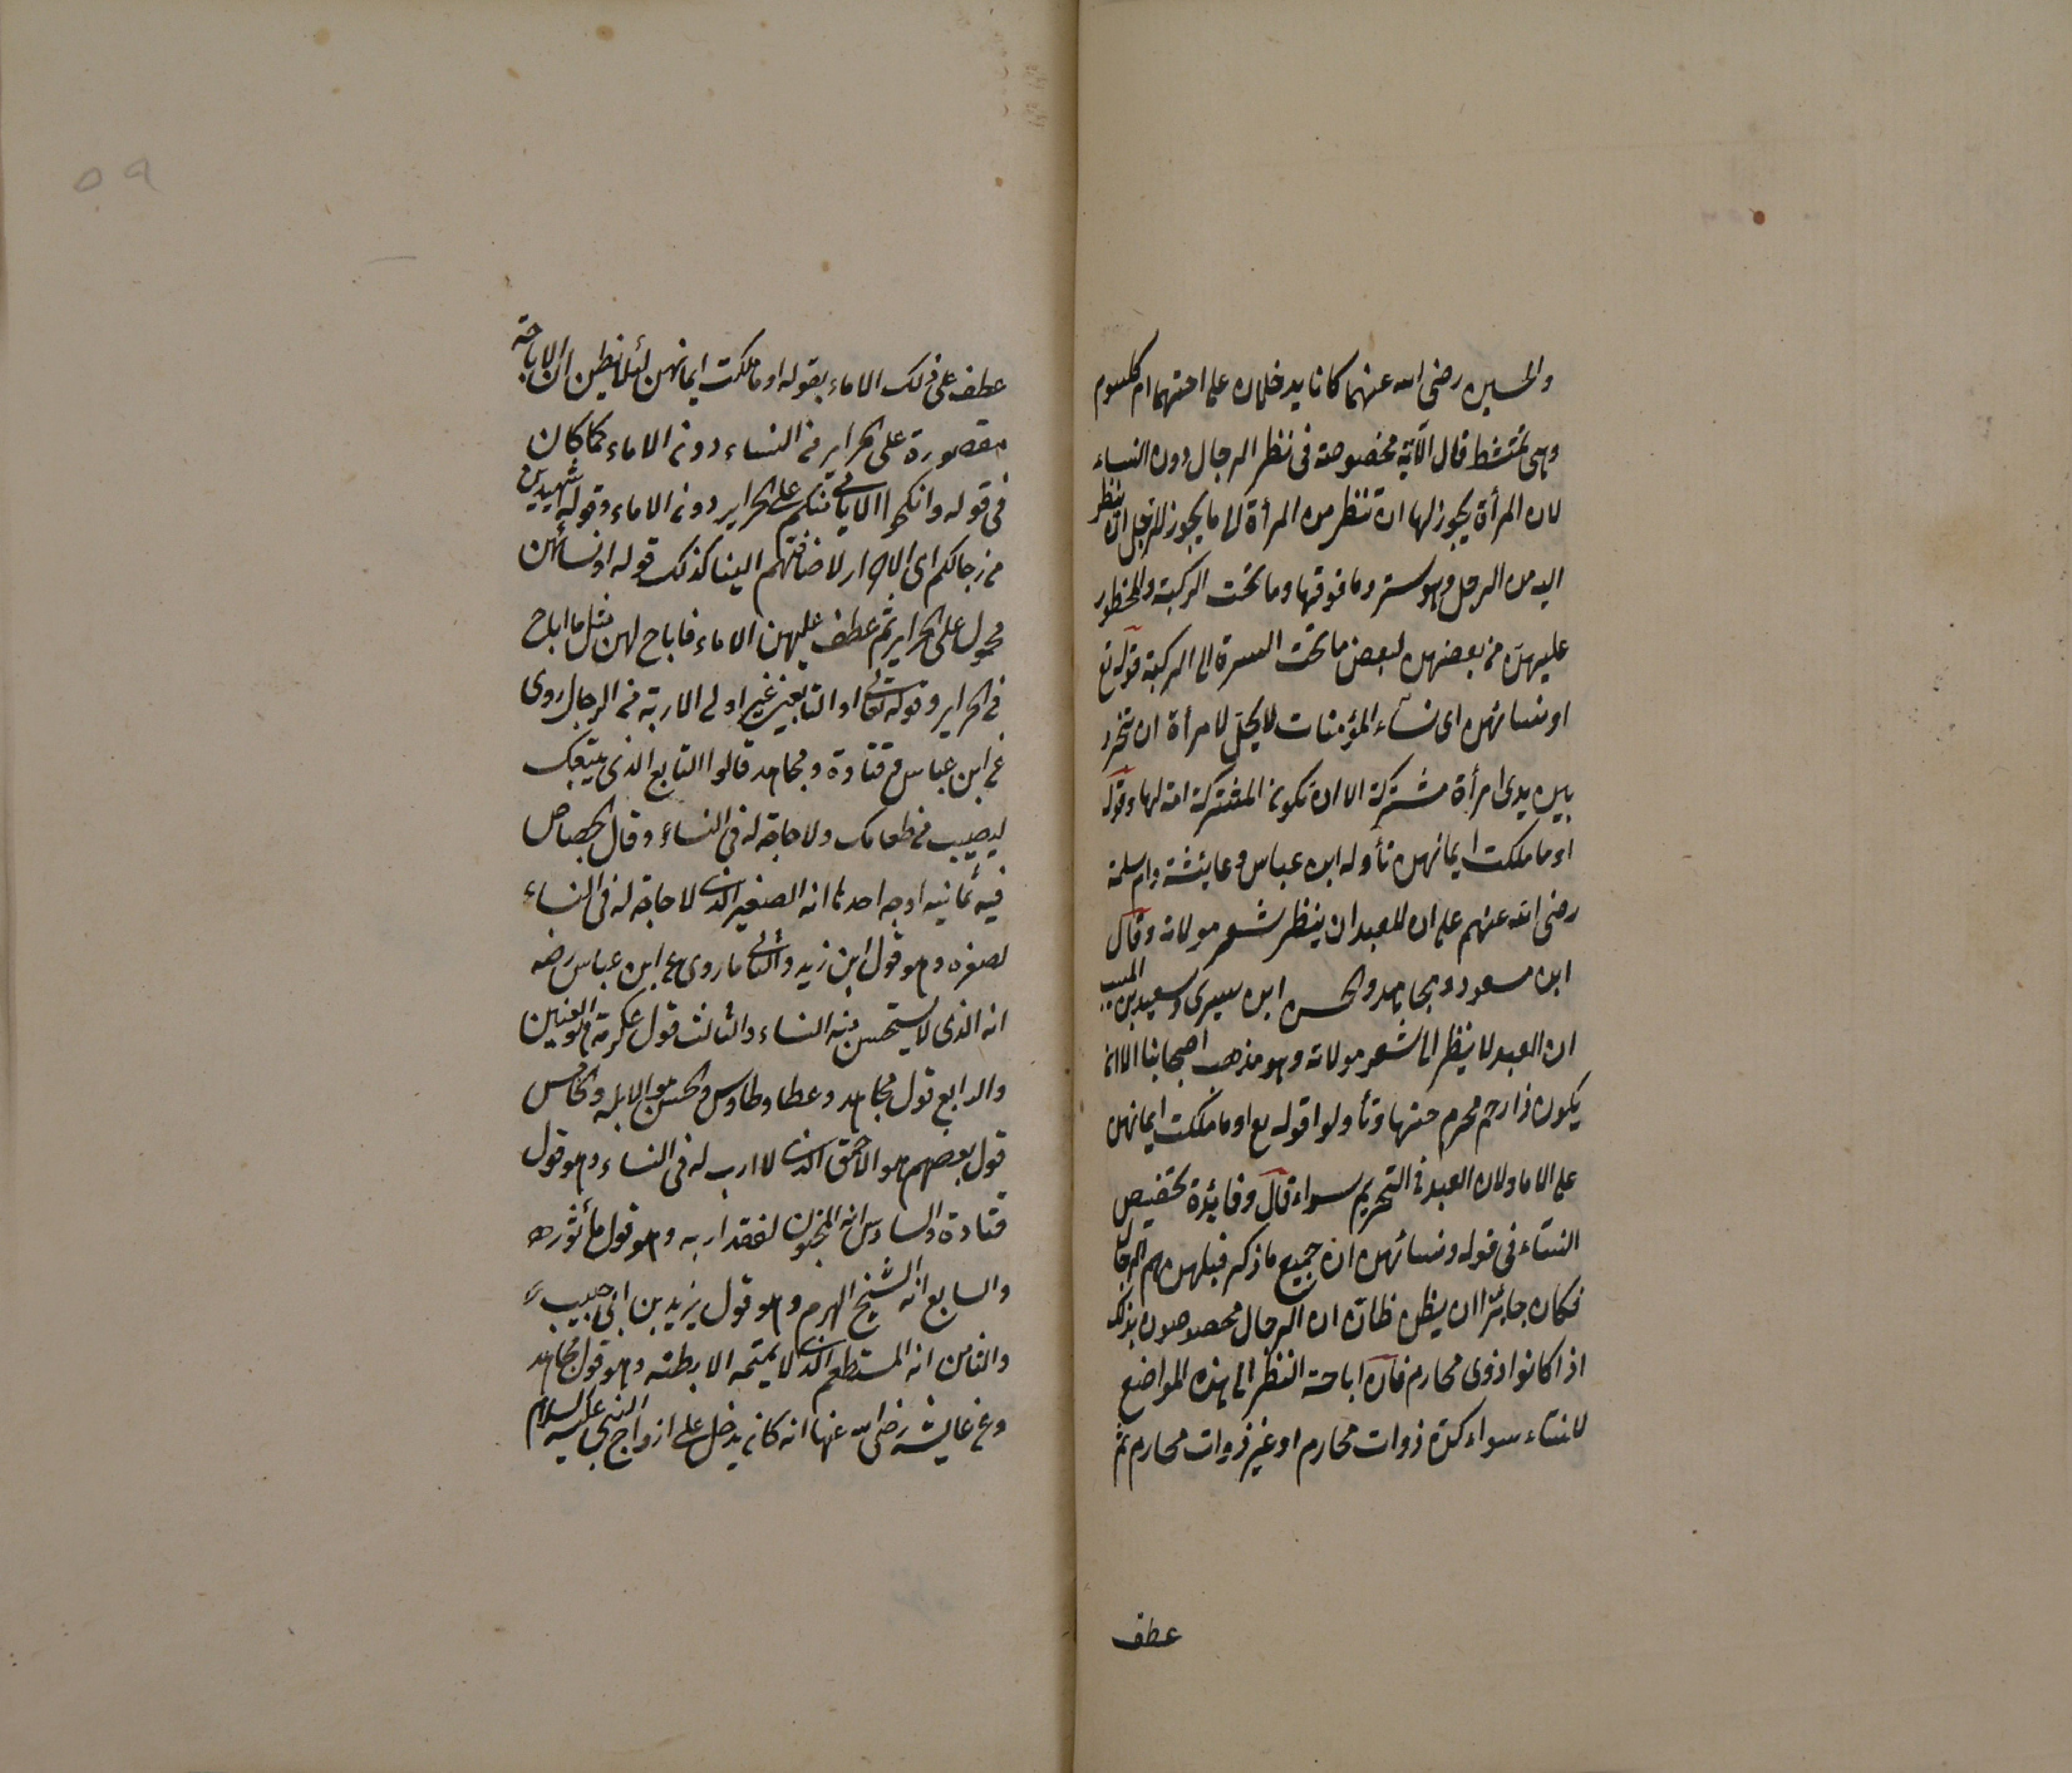 والحسين رضى الله عنهما كانا يدخلان على اختهما ام كلثوم
وهى تمتشط قال الآية مخصوصة فى نظر الرجال دون النساء
لان المرأة يجوز لها ان تنظر من المرأة الى ما يجوز للرجل ان ينظر
اليه من الرجل وهو ستر وما فوقها وما تحت الركبة والمحظور
عليهن من بعضهن لبعض ما تحت السرة الى الركبة قوله تع
او نسائهن اى نساء المؤمنات لا يحل لامرأة ان تتجرد
بين يدى امرأة مشتركة الا ان تكون المشتركة امة لها وقوله
او ما ملكت ايمانهن تأوله ابن عباس وعايشة وام سلمة
رضى الله عنهم على ان للعبد ان ينظر شعر مولاته وقال
ابن مسعود ومجاهد والحسن ابن سيرى وسعيد بن المسيب
ان العبد لا ينظر الى شعر مولاته وهو مذهب اصحابنا الا ان
يكون ذا رحم محرم منها وتأولوا قوله تع او ما ملكت ايمانهن
على الاما ولان العبد فى التحريم سواء قال وفايدة تخصيص
النساء فى قوله ونسائهن ان جميع ما ذكر قبلهن هم الرجال
فكان جائزا ان يظن ظان ان الرجال مخصوصون بذلك
اذا كانوا ذوى محارم فان اباحة النظر الى هذه المواضع
لانساء سواء كن ذوات محارم او غير ذوات محارم ثم
عطف
۵۹
عطف على ذلك الاماء بقوله او ما ملكت ايمانهن لئلا يظن ان الاباحة
مقصورة على الحراير من النساء دون الاماء كما كان
فى قوله وانكحوا الايامى منكم على الحراير دون الاماء وقوله شهيدين
من رجالكم اى الاحرار لاضافتهم الينا كذلك قوله او نسائهن
محمول على الحراير ثم عطف عليهن الاماء فاباح لهن مثل ما اباح
فى الحراير وقوله تعالى او التابعين غير اولى الاربة من الرجال روى
عن ابن عباس وقتادة ومجاهد قالوا التابع الذى يتبعك
ليصيب من طعامك ولا حاجة له فى النساء وقال الجصاص
فيه ثمانية اوجه احدها انه الصغير الذى لا حاجة له فى النساء
لصغره وهو قول ابن زيد والثانى ما روى عن ابن عباس رضه
انه الذى لا يستحسن منه النساء والثالث قول عكرمة هو العنين
والرابع قول مجاهد وعطا وطاوس والحسن هو الابله والخامس
قول بعضهم هو الاحمق الذى لا ارب له فى النساء وهو قول
قتادة والسادس انه المجنون لفقد اربه وهو قول مأثوره
والسابع انه الشيخ الهرم وهو قول يزيد بن ابى حبيب
والثامن انه المستطعم الذى لا يهمه الا بطنه وهو قول مجاهد
وعن عايشه رضى الله عنها انه كان يدخل على ازواج النبى عليه السلام